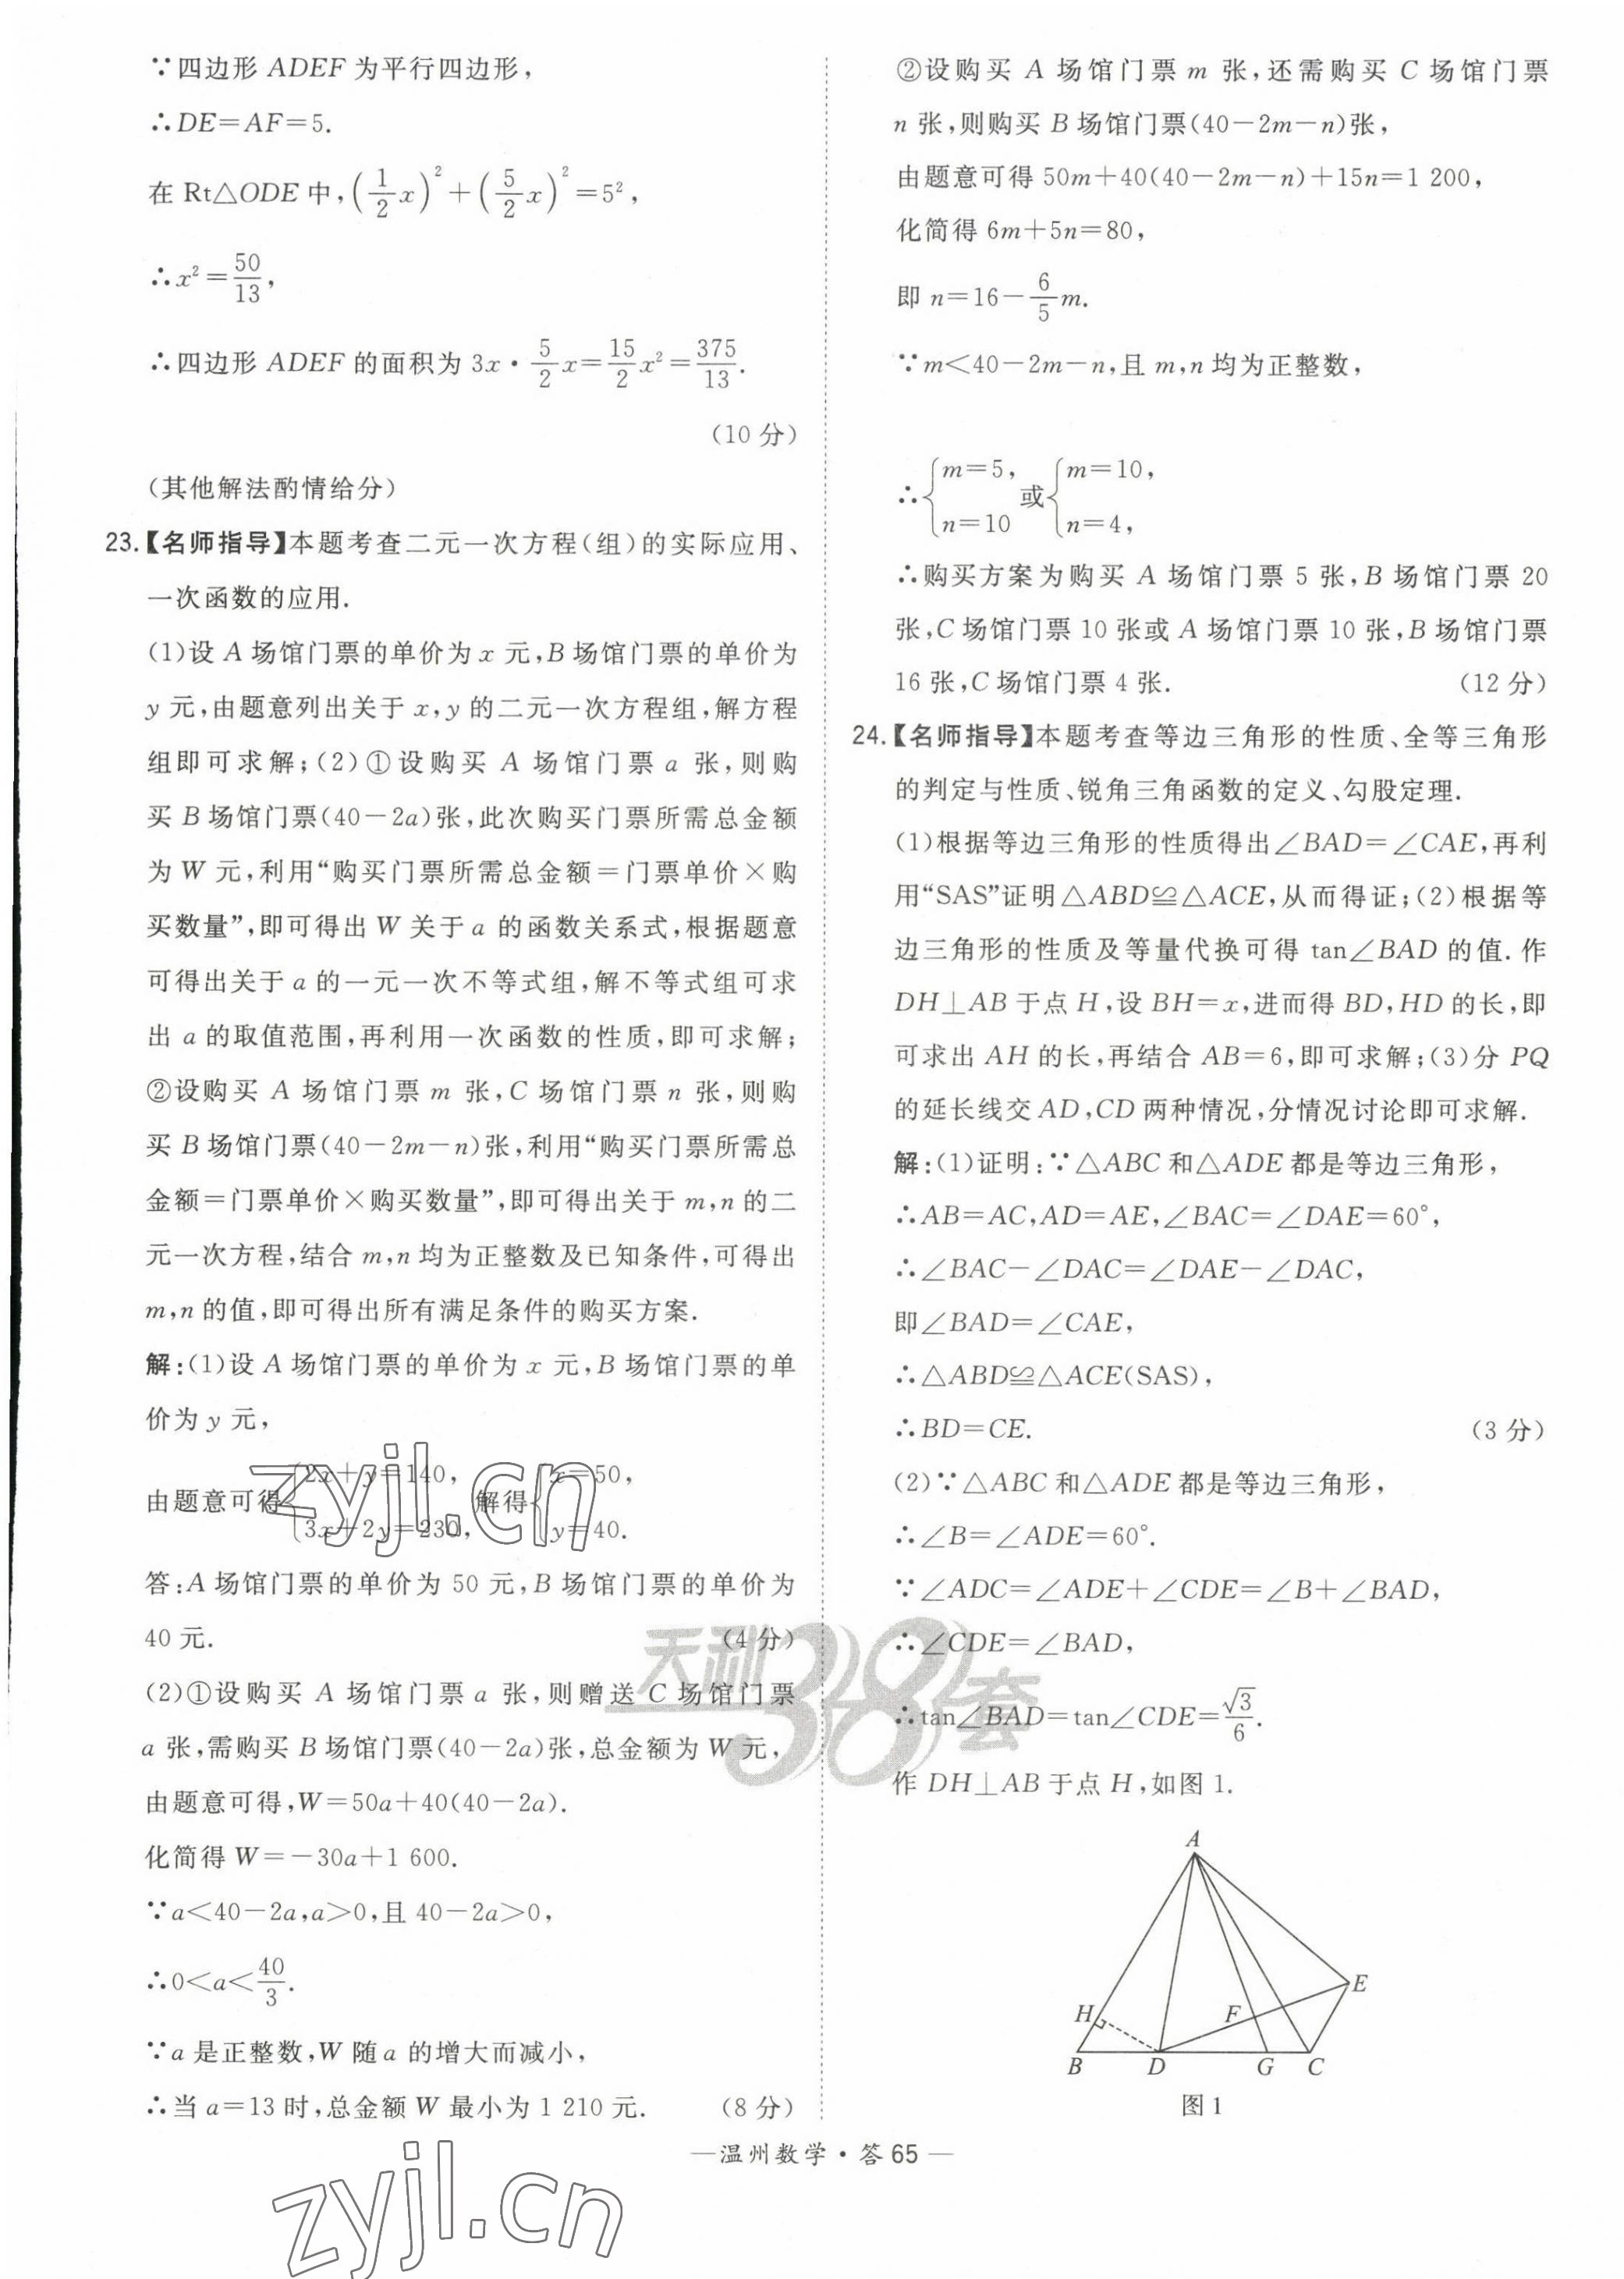 ∵四边形 ADEF 为平行四边形，
∴DE=AF=5.
在 Rt△ODE 中，(1/2 x)²+(5/2 x)²=5²，
∴x²=50/13，
∴四边形 ADEF 的面积为 3x·5/2 x=15/2 x²=375/13.
(10 分)
(其他解法酌情给分)
23.【名师指导】本题考查二元一次方程(组)的实际应用、
一次函数的应用.
(1)设 A 场馆门票的单价为 x 元，B 场馆门票的单价为
y 元，由题意列出关于 x，y 的二元一次方程组，解方程
组即可求解；(2)①设购买 A 场馆门票 a 张，则购
买 B 场馆门票(40－2a)张，此次购买门票所需总金额
为 W 元，利用“购买门票所需总金额＝门票单价×购
买数量”，即可得出 W 关于 a 的函数关系式，根据题意
可得出关于 a 的一元一次不等式组，解不等式组可求
出 a 的取值范围，再利用一次函数的性质，即可求解；
②设购买 A 场馆门票 m 张，C 场馆门票 n 张，则购
买 B 场馆门票(40－2m－n)张，利用“购买门票所需总
金额＝门票单价×购买数量”，即可得出关于 m，n 的二
元一次方程，结合 m，n 均为正整数及已知条件，可得出
m，n 的值，即可得出所有满足条件的购买方案.
解：(1)设 A 场馆门票的单价为 x 元，B 场馆门票的单
价为 y 元，
由题意可得{2x+y=140，3x+2y=230，解得{x=50，y=40.
答：A 场馆门票的单价为 50 元，B 场馆门票的单价为
40 元. (4 分)
(2)①设购买 A 场馆门票 a 张，则赠送 C 场馆门票
a 张，需购买 B 场馆门票(40－2a)张，总金额为 W 元，
由题意可得，W=50a+40(40－2a).
化简得 W=－30a+1 600.
∵a<40－2a，a>0，且 40－2a>0，
∴0<a<40/3.
∵a 是正整数，W 随 a 的增大而减小，
∴当 a=13 时，总金额 W 最小为 1 210 元. (8 分)
②设购买 A 场馆门票 m 张，还需购买 C 场馆门票
n 张，则购买 B 场馆门票(40－2m－n)张，
由题意可得 50m+40(40－2m－n)+15n=1 200，
化简得 6m+5n=80，
即 n=16－6/5 m.
∵m<40－2m－n，且 m，n 均为正整数，
∴{m=5，n=10 或{m=10，n=4，
∴购买方案为购买 A 场馆门票 5 张，B 场馆门票 20
张，C 场馆门票 10 张或 A 场馆门票 10 张，B 场馆门票
16 张，C 场馆门票 4 张. (12 分)
24.【名师指导】本题考查等边三角形的性质、全等三角形
的判定与性质、锐角三角函数的定义、勾股定理.
(1)根据等边三角形的性质得出∠BAD=∠CAE，再利
用“SAS”证明△ABD≌△ACE，从而得证；(2)根据等
边三角形的性质及等量代换可得 tan∠BAD 的值. 作
DH⊥AB 于点 H，设 BH=x，进而得 BD，HD 的长，即
可求出 AH 的长，再结合 AB=6，即可求解；(3)分 PQ
的延长线交 AD，CD 两种情况，分情况讨论即可求解.
解：(1)证明：∵△ABC 和△ADE 都是等边三角形，
∴AB=AC，AD=AE，∠BAC=∠DAE=60°，
∴∠BAC－∠DAC=∠DAE－∠DAC，
即∠BAD=∠CAE，
∴△ABD≌△ACE(SAS)，
∴BD=CE. (3 分)
(2)∵△ABC 和△ADE 都是等边三角形，
∴∠B=∠ADE=60°.
∵∠ADC=∠ADE+∠CDE=∠B+∠BAD，
∴∠CDE=∠BAD，
∴tan∠BAD=tan∠CDE=√3/6.
作 DH⊥AB 于点 H，如图 1.
A
E
H
F
B D G C
图 1
—温州数学·答 65—
zyjl.cn
天利38套
zyjl.cn